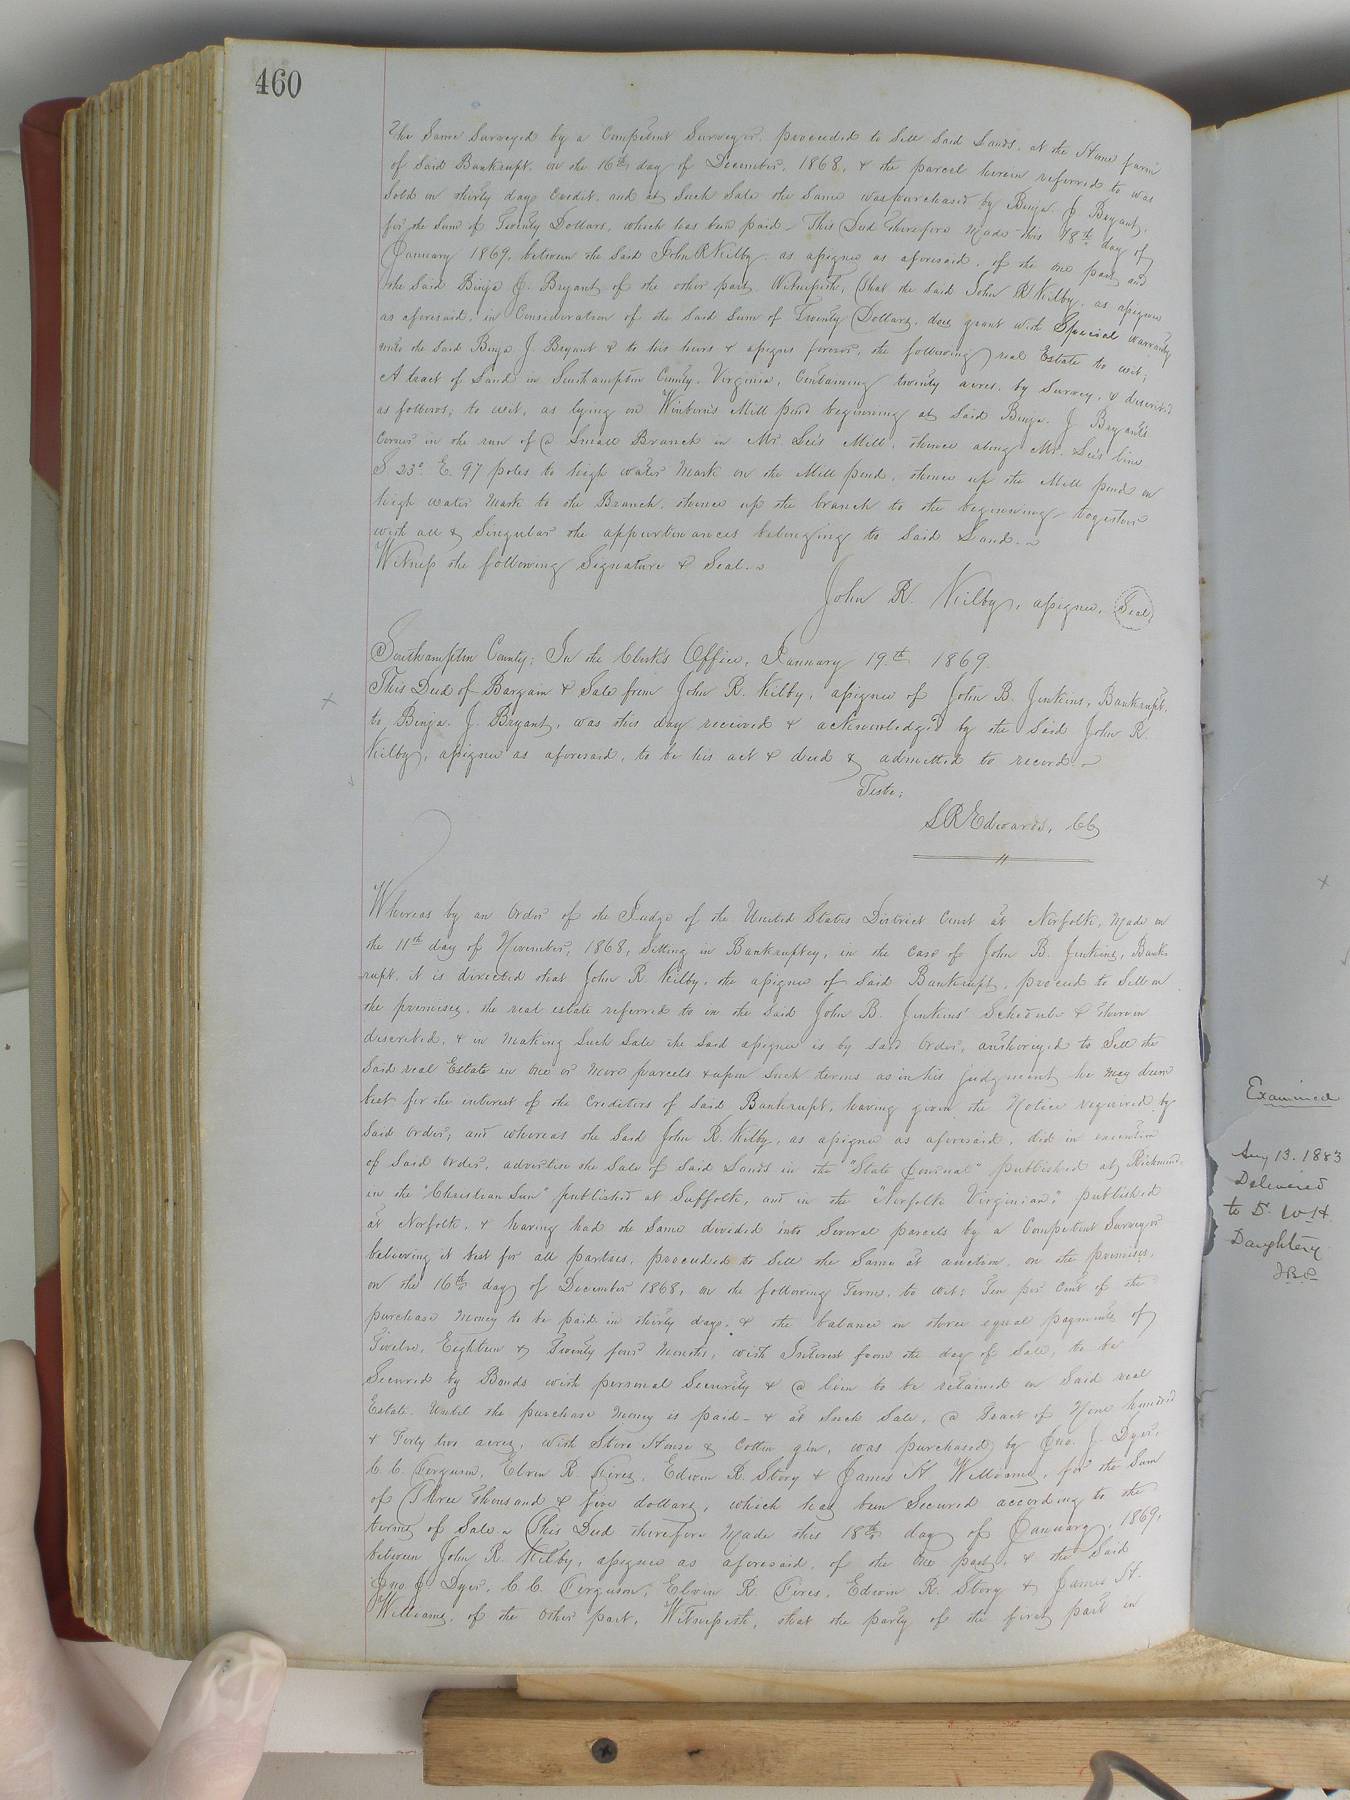 460
the Same Surveyed by a Competent Surveyor, proceeded to Sell Said Lands, at the Home farm
of Said Bankrupt, on the 16th day of December, 1868, & the parcel herein referred to was
Sold on thirty days Credit, and at Such Sale the Same was purchased by Benja. J. Bryant,
for the Sum of Twenty Dollars, which has been paid - This Deed therefore Made this 18th day of
January 1869, between the Said John R Kilby, as assignee as aforesaid, of the one part and
the Said Benja J. Bryant of the other part. Witnesseth, that the Said John R Kilby, as assignee
as aforesaid, in Consideration of the Said Sum of Twenty Dollars, does grant with Special warranty
unto the Said Benja J. Bryant & to his heirs & assigns forever, the following real Estate to wit;
A tract of Land in Southampton County, Virginia, Containing twenty acres, by Survey, & described
as follows; to wit, as lying on Winborn's Mill pond beginning at Said Benja. J Bryant's
Corner in the run of a Small Branch in Mr Lee's Mill, thence along Mr. Lee's line
S. 23° E. 97 poles to high water Mark on the Mill pond, thence up the Mill pond on
high water Mark to the Branch, thence up the branch to the beginning together
with all & Singular the appurtenances belonging to Said Land.
Witness the following Signature & Seal.
John R. Kilby, assignee, Seal
Southampton County; In the Clerk's Office, January 19th 1869.
This Deed of Bargain & Sale from John R. Kilby, assignee of John B. Jenkins, Bankrupt,
to Benja. J. Bryant, was this day received & acknowledged by the Said John R.
Kilby, assignee as aforesaid, to be his act & deed & admitted to record.
Teste;
L R Edwards, CC
Whereas by an Order of the Judge of the United States District Court at Norfolk, Made on
the 11th day of November, 1868, Sitting in Bankruptcy, in the Case of John B. Jenkins, Bank
rupt, it is directed that John R Kilby, the assignee of Said Bankrupt, proceed to Sell on
the premises, the real estate referred to in the Said John B. Jenkins' Schedule & therein
described, & in Making Such Sale the Said assignee is by Said Order, authorized to Sell the
Said real Estate in One or More parcels & upon Such terms as in his Judgment he May deem
best for the interest of the Creditors of Said Bankrupt, having given the Notice required by
Said Order, and whereas the Said John R. Kilby, as assignee as aforesaid, did in execution
of Said Order, advertise the Sale of Said Lands in the "State Journal" published at Richmond,
in the "Christian Sun" published at Suffolk, and in the "Norfolk Virginian," published
at Norfolk, & having had the Same divided into Several parcels by a Competent Surveyor
believing it best for all parties, proceeded to Sell the Same at auction, on the premises,
on the 16th day of December 1868, on the following Terms, to wit; Ten per Cent of the
purchase Money to be paid in thirty days, & the balance in three equal payments of
Twelve, Eighteen & Twenty four Months, with Interest from the day of Sale, to be
Secured by Bonds with personal Security & a lien to be retained on Said real
Estate, Until the purchase Money is paid - & at Such Sale, a Tract of None hundred
& Forty two acres, with Store House & Cotton gin, was purchased by Jno. J. Dyer,
C. C. Ferguson, Elvin R. Edwin R. Story & James H Williams, for the Sum
of Three thousand & five dollars, which has been Secured according to the
terms of Sale. This Deed therefore Made this 18th day of January, 1869,
between John R. Kilby, assignee as aforesaid, of the One part, & the Said
Jno. J. Dyer, C. C. Ferguson, Elvin R Edwin R. Story & James H.
Williams, of the Other part, Witnesseth, that the party of the first part in
Examined
Aug 13. 1883
Delivered
to D. W H
Daughtery